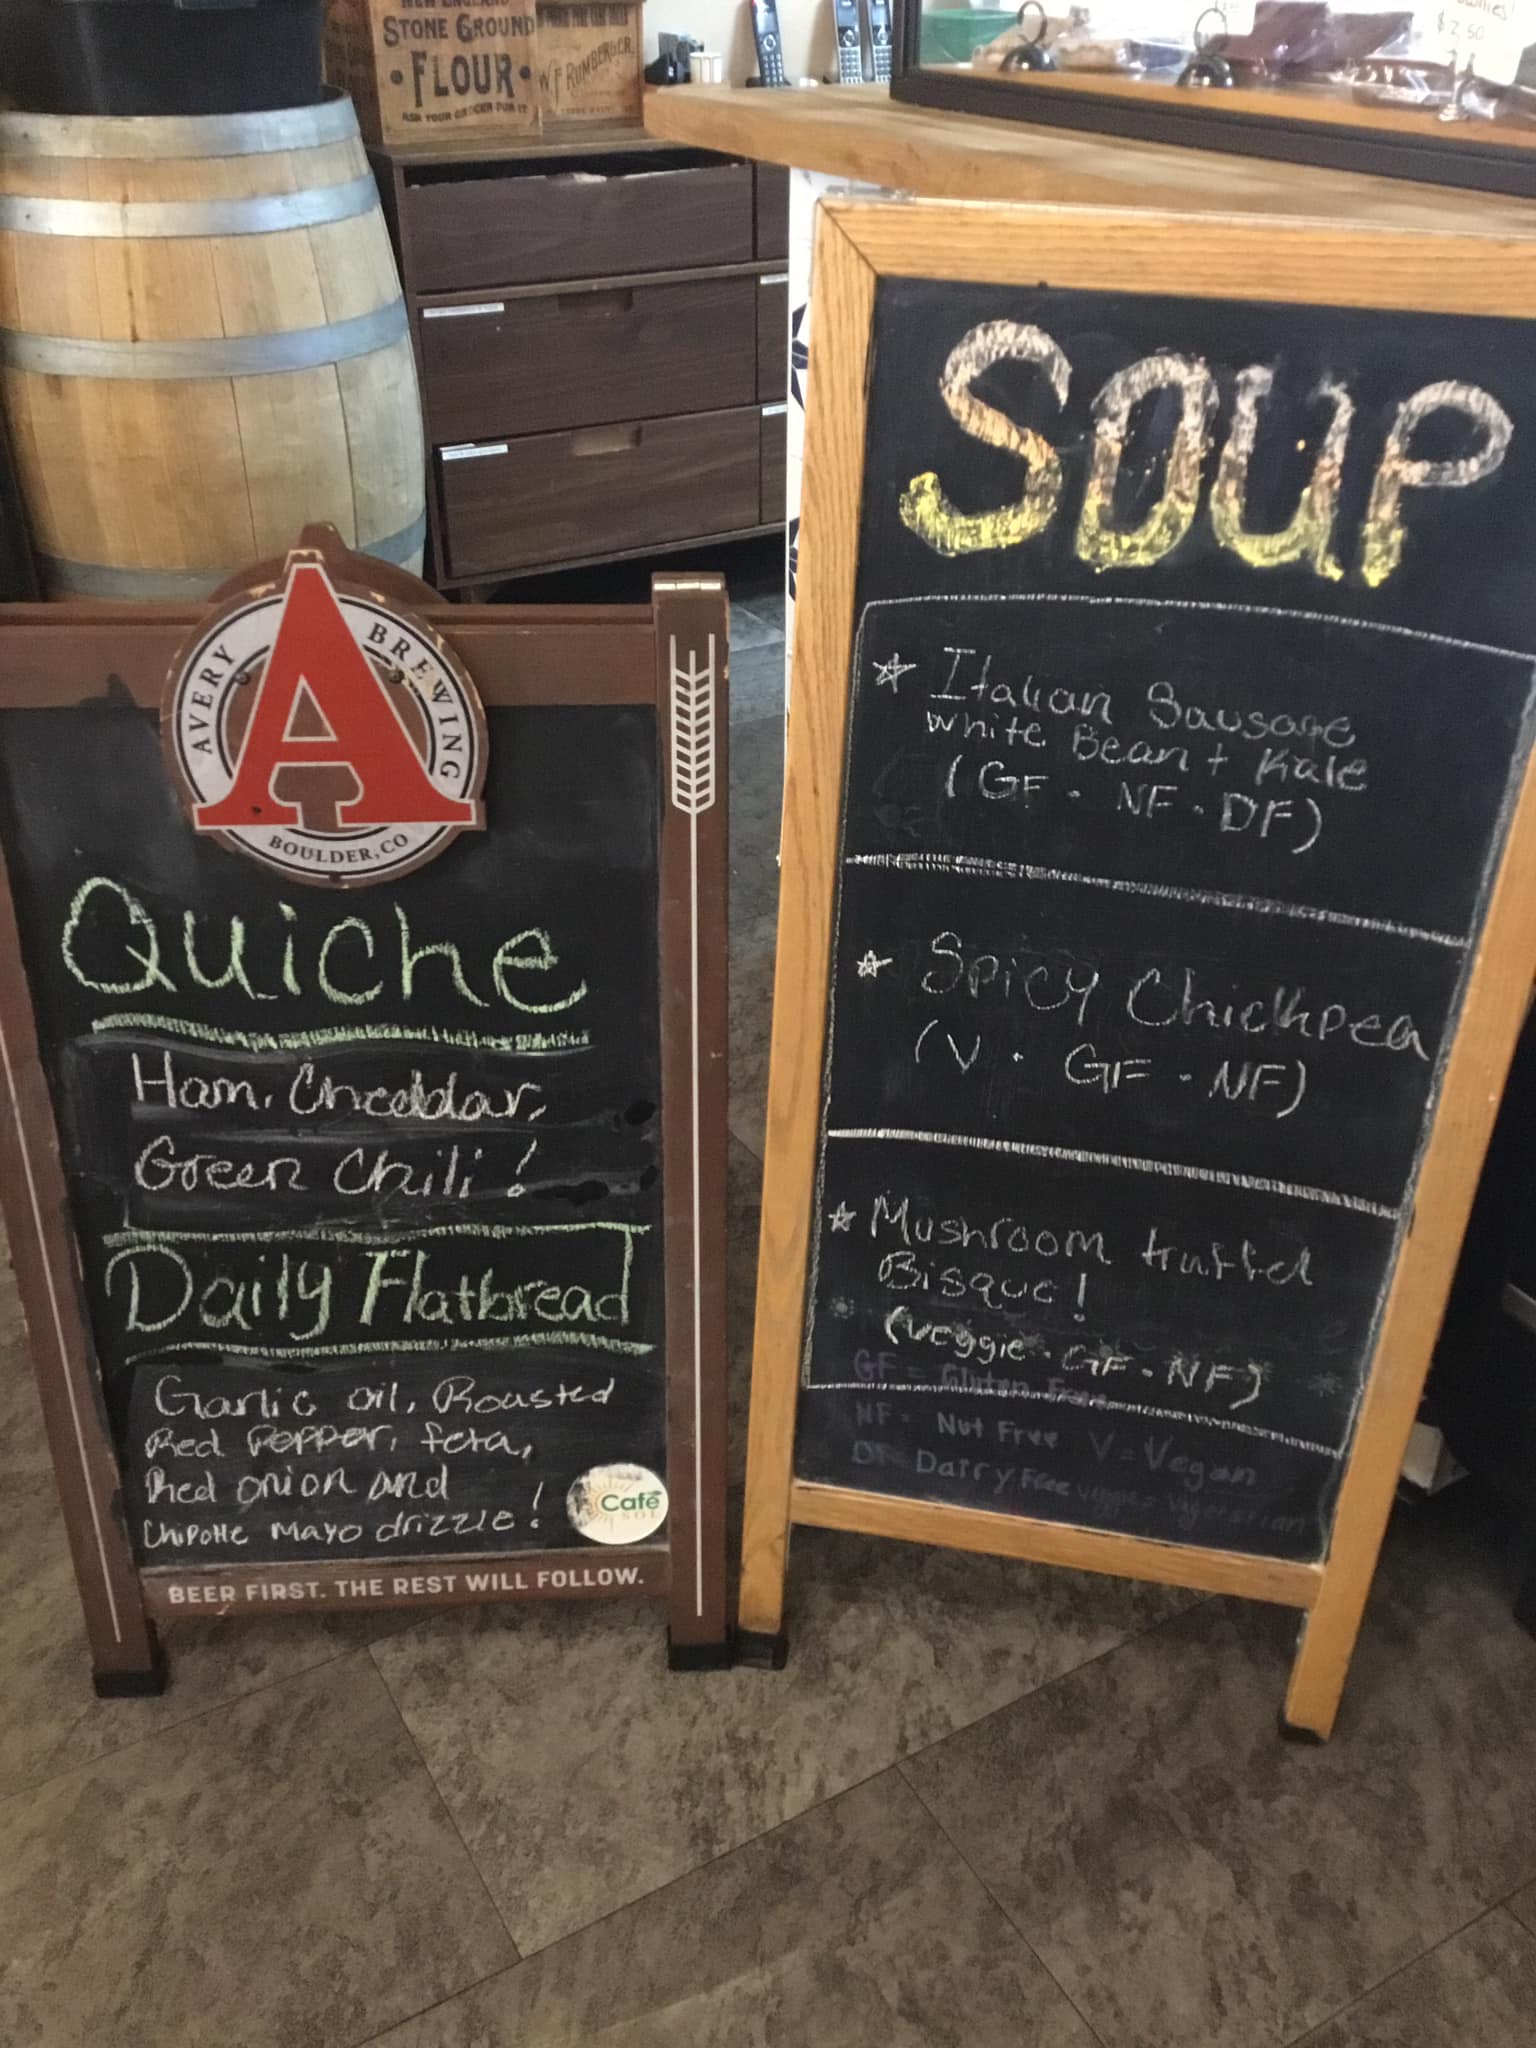 NEW ENGLAND
STONE GROUND
• FLOUR •
ASK YOUR GROCER FOR IT
$2.50
AVERY BREWING
A
BOULDER, CO
Quiche
Ham, Cheddar,
Green Chili!
Daily Flatbread
Garlic oil, Roasted
Red Pepper, feta,
Red onion and
Chipotle Mayo drizzle!
Café
SOL
BEER FIRST. THE REST WILL FOLLOW.
SOUP
Italian Sausage
White Bean + Kale
(GF · NF · DF)
Spicy Chickpea
(V · GF · NF)
Mushroom truffel
Bisque!
(veggie · GF · NF)
GF = Gluten Free
NF = Nut Free V = Vegan
DF = Dairy Free